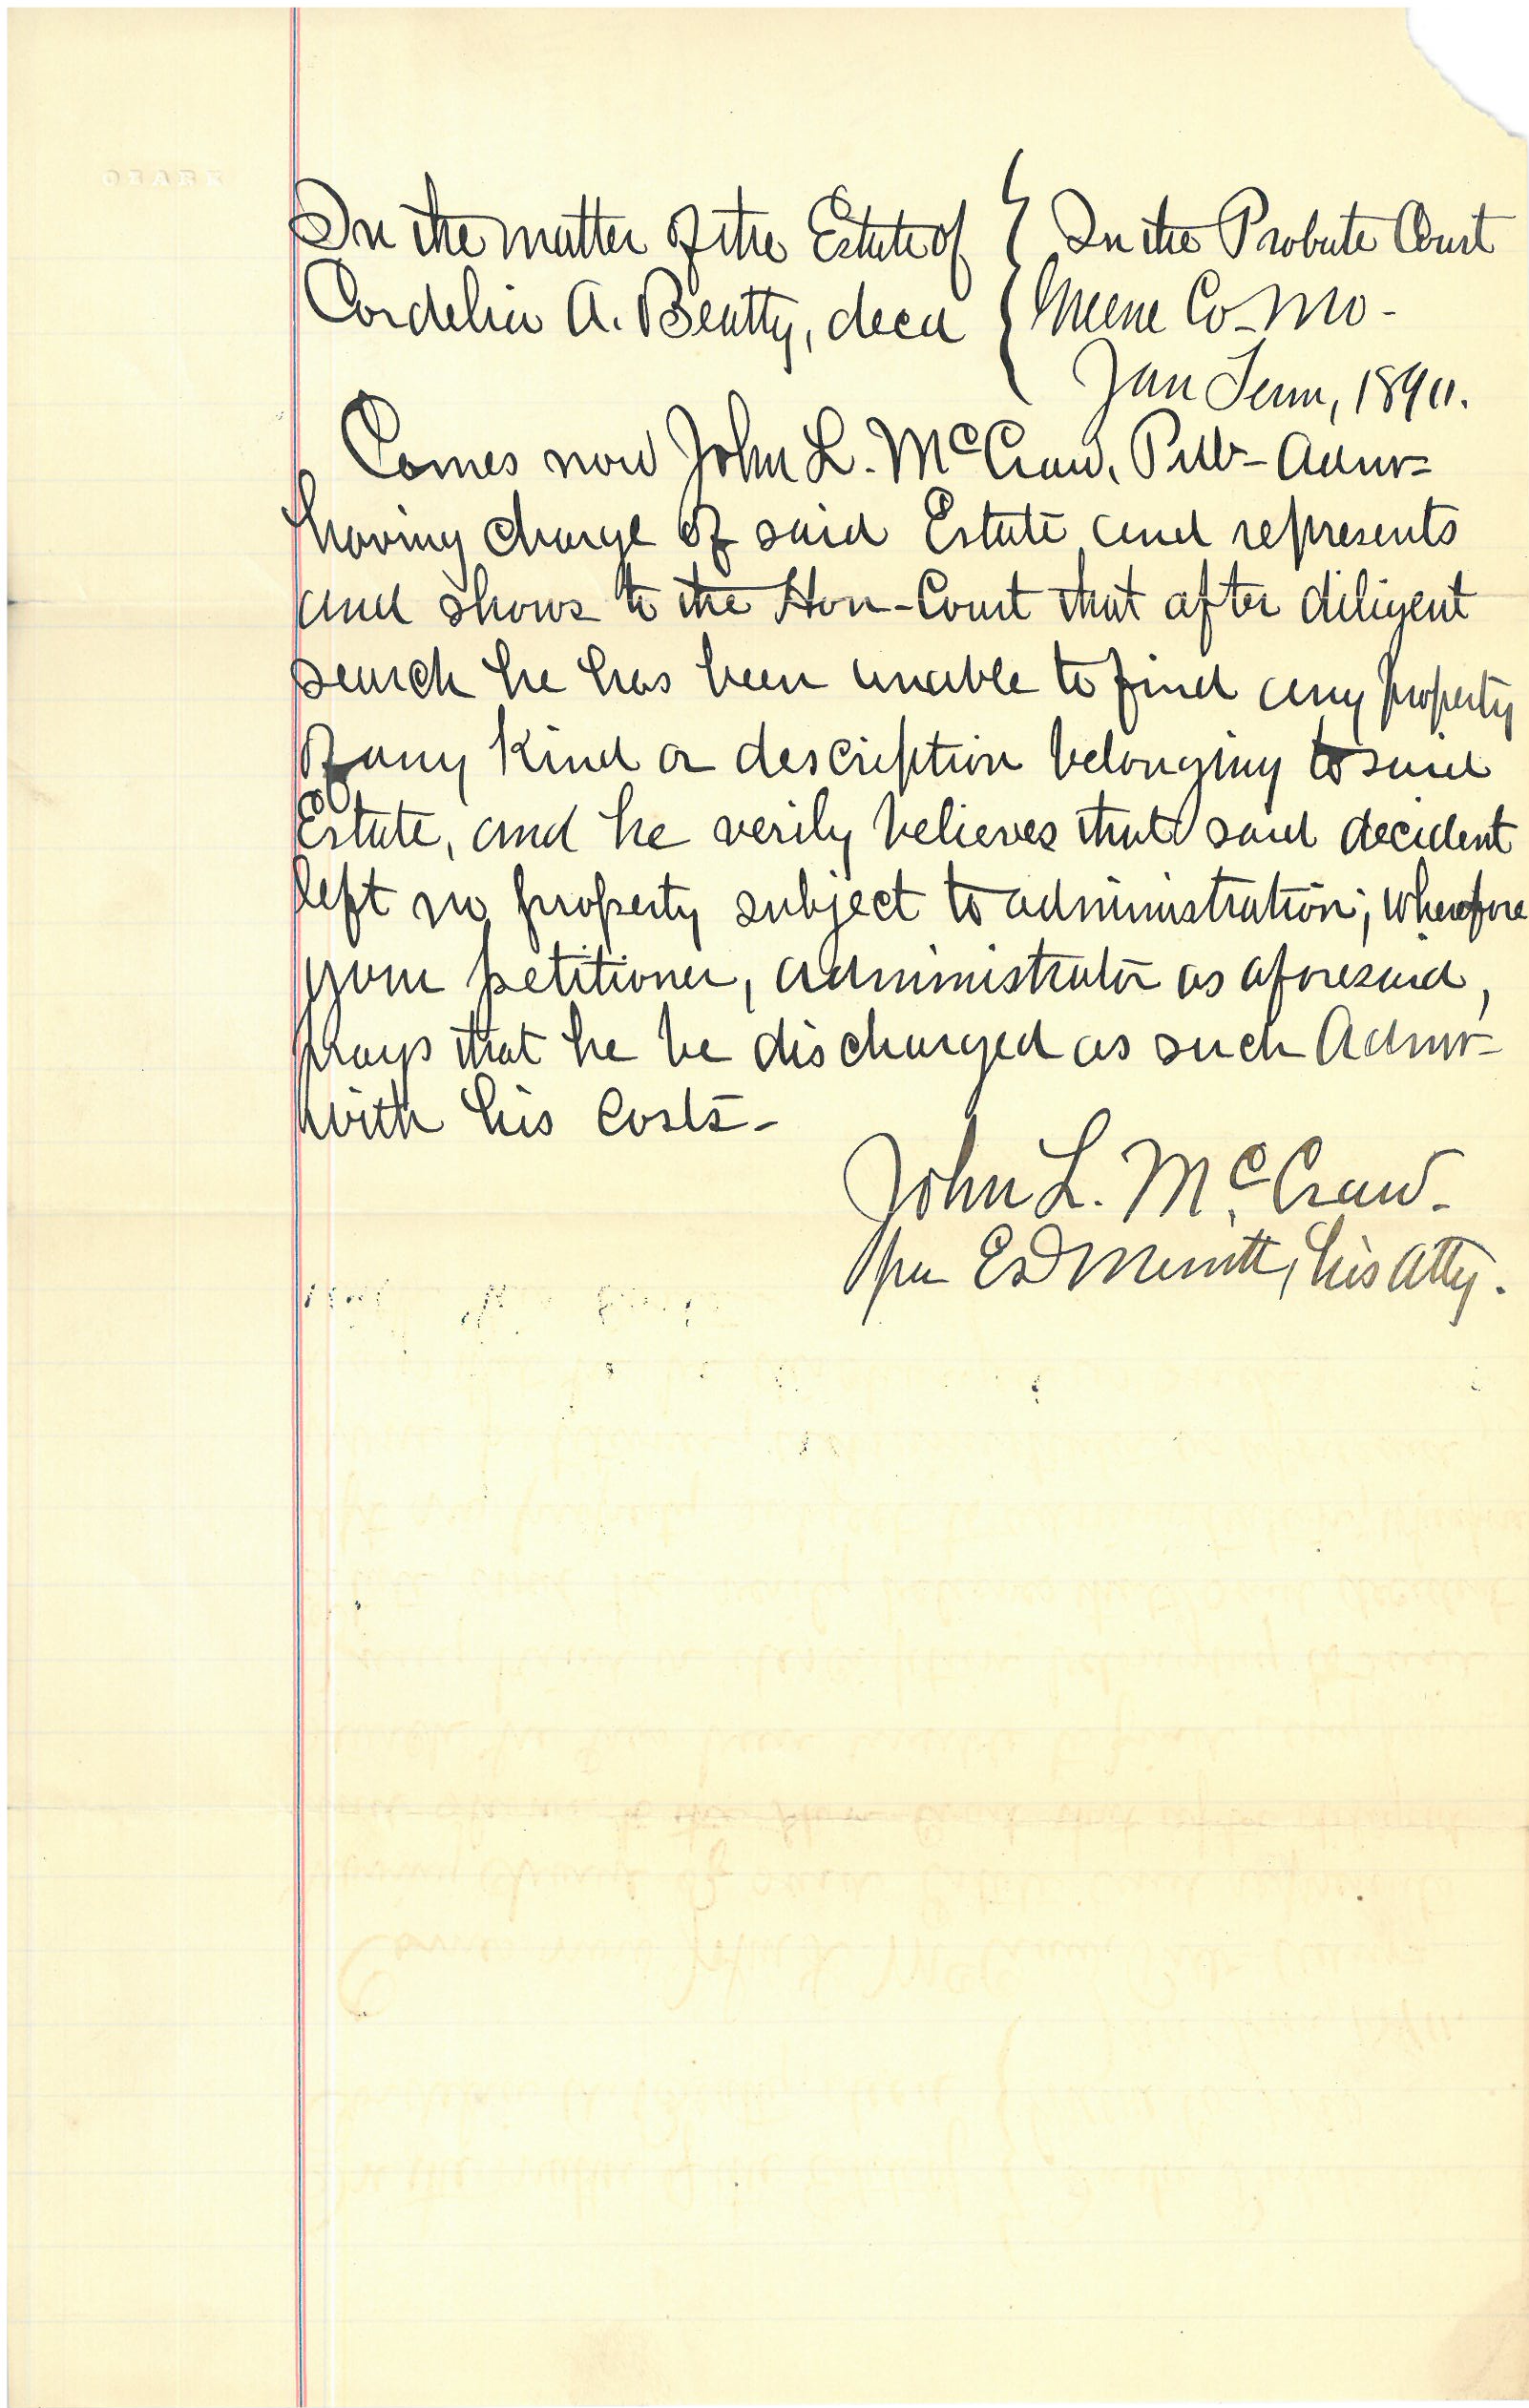 OZARK
In the matter of the Estate of } In the Probate Court
Cordelia A. Beatty, decd } Greene Co - Mo -
Jan Term, 1890.
Comes now John L. McCraw, Pub - Admr -
having charge of said Estate and represents
and shows to the Hon - Court that after diligent
search he has been unable to find any property
of any kind or description belonging to said
Estate, and he verily believes that said decident
left no property subject to administration; wherefore
your petitioner, administrator as aforesaid,
prays that he be discharged as such Admr -
with his costs -
John L. McCraw -
per Ed Merritt, his atty.